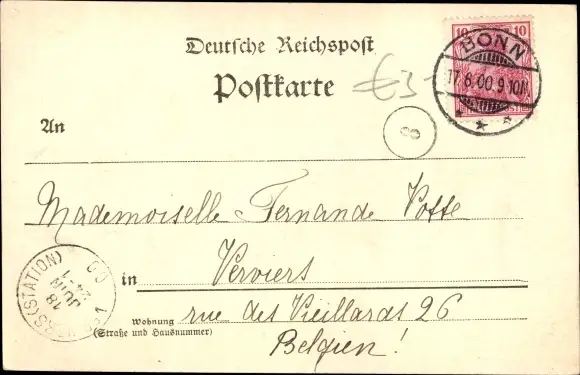 Deutsche Reichspost
Postkarte
10 10
BONN
17.6.00.9-10N.
€3-
8
An
Mademoiselle Fernande Votte
in Verviers
Wohnung rue des Vieillards 26
(Straße und Hausnummer)
Belgien!
(STATION)
18
JUIN
00